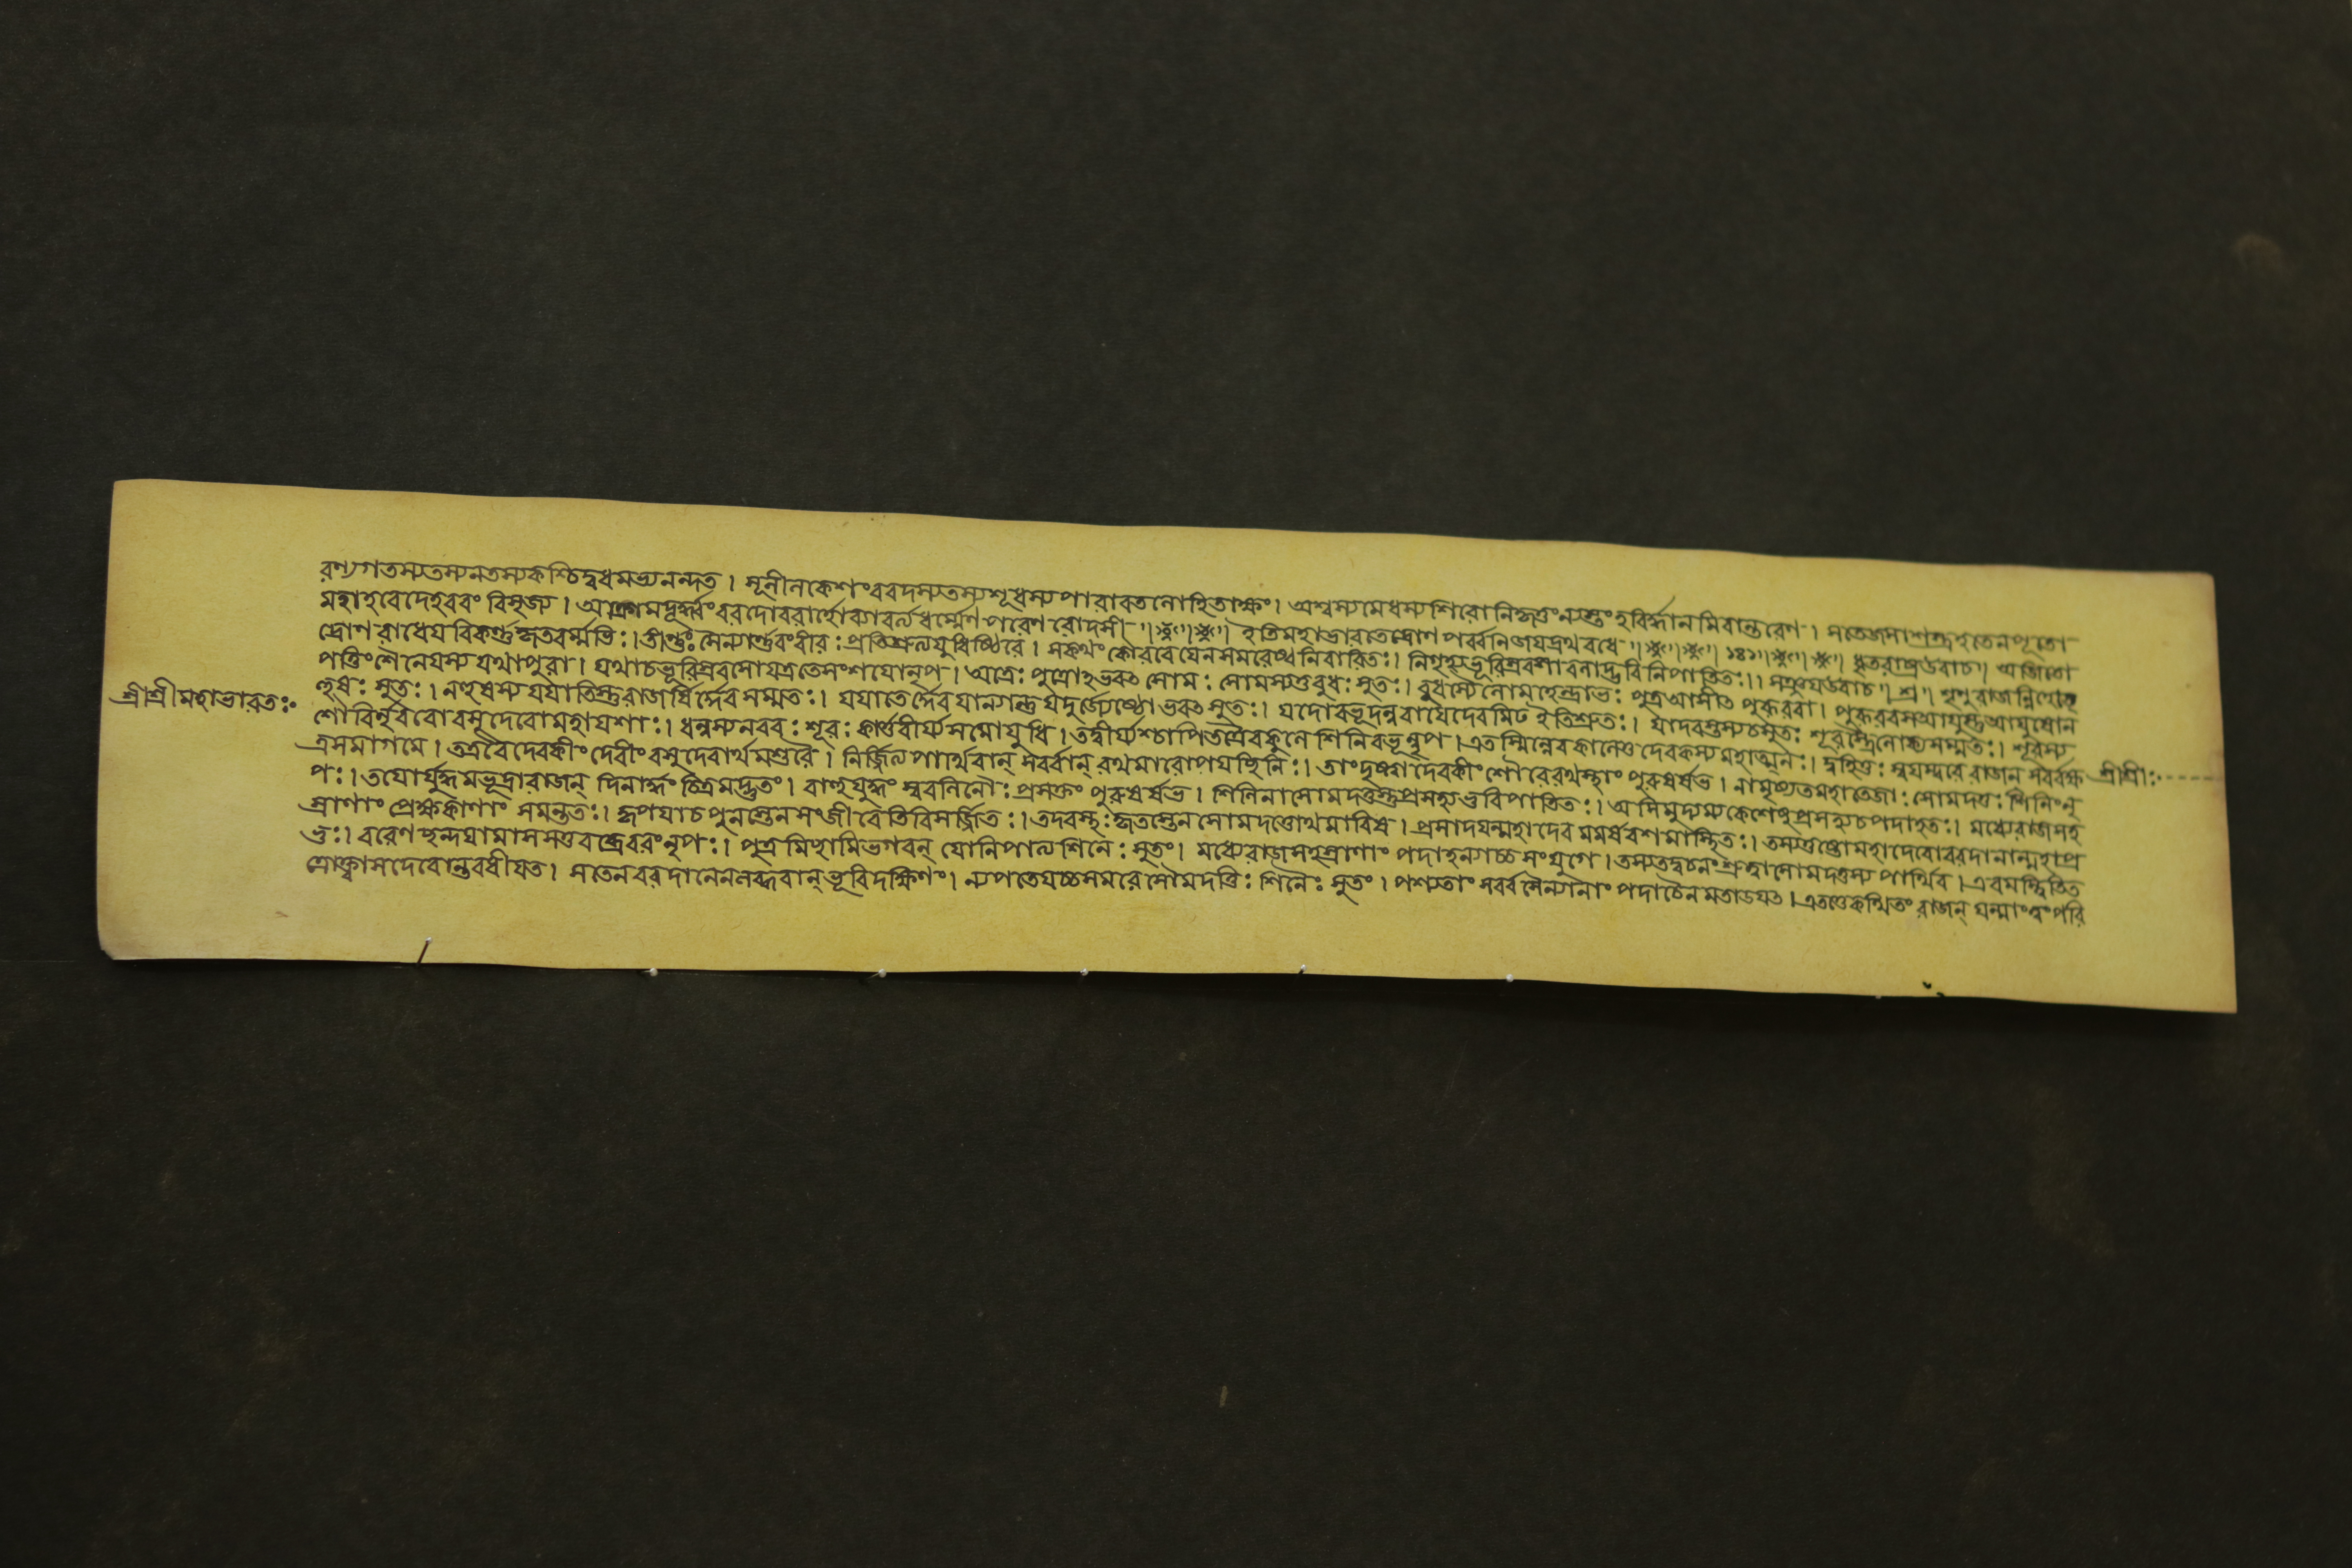 রণ্যগতস্যতস্যনতস্যকশ্চিদ্বধমভ্যনন্দত। সূনীনকেশংবরদস্যতস্যশূধস্যপারাবতলোহিতাক্ষং। অশ্বস্যমেধস্যশিরোনিকৃত্তংন্যস্তংহবির্দ্ধানমিবান্তরেণ। সতেজসাশস্ত্রহতেনপূতো
মহাহবেদেহবরং বিসৃজ্য। আক্রামদূর্দ্ধ্বংবরদোবরার্হোব্যাবর্ত্যধর্ম্মেণপরেণরোদসী ৷৷ ৷৷ ইতিমহাভারতেদ্রোণপর্ব্বনিজযদ্রথবধে ৷৷ ১৪১ ৷৷ ধৃতরাষ্ট্রউবাচ৷৷ অজিতো
দ্রোণরাধেযবিকর্ণ্ণকৃতবর্ম্মভিঃ। তীর্ণ্ণঃসৈন্যার্ণ্ণবংবীরঃপ্রতিশ্রুত্যযুধিষ্ঠিরে। সকথংকৌরবেযেনসমরেষ্বনিবারিতঃ। নিগৃহ্যভূরিশ্রবসাবলাদ্ভুবিনিপাতিতঃ।। সঞ্জযউবাচ৷৷ শৃণুরাজন্নিহোৎ
পত্তিংশৈনেযস্য যথাপুরা। যথাচভূরিশ্রবসোযত্রতেসংশযোনৃপ। অত্রেঃ পুত্রোহভবৎ সোমঃ সোমস্যতুবুধঃ সুতঃ। বুধস্যৈনোমহেন্দ্রাভঃ পুত্রআসীৎ পুরূরবা। পুরূরবসআযুস্তুআযুষোন
হুষঃ সুতঃ। নহুষস্য যযাতিস্তুরাজর্ষির্দ্দেবসম্মতঃ। যযাতের্দ্দেবযান্যান্তু যদুর্জ্যেষ্ঠোভবৎ সুতঃ। যদোরভূদন্ববাযেদেবমিঢ ইতিশ্রুতঃ। যাদবস্তস্যচসুতঃ শূরস্ত্রৈলোক্যসম্মতঃ। শূরস্য
শৌরির্নৃবরোবসুদেবোমহাযশাঃ। ধনুস্যনবরঃ শূরঃ কার্ত্তবীর্য্যসমোযুধি। তদ্বীর্য্যশ্চাপিতত্রৈবকুলেশিনিবভূন্নৃপ। এতস্মিন্নেবকালেতুদেবকস্যমহাত্মনঃ। দুহিতুঃ স্বযম্বরেরাজন্ সর্ব্বক্ষ
ত্রসমাগমে। তত্রবৈদেবকীং দেবীং বসুদেবার্থমাশুবৈ। নির্জ্জিত্যপার্থিবান্ সর্ব্বান্ রথমারোপযচ্ছিনিঃ। তাংদৃষ্ট্বাদেবকীং শৌরেরথস্থাং পুরুষর্ষভ। নামৃষ্যতমহাতেজাঃ সোমদত্তঃ শিনিংনৃ
পঃ। তযোর্যুদ্ধমভূদ্রাজন্ দিনার্দ্ধং চিত্রমদ্ভুতং। বাহুযুদ্ধং সুবলিনোঃ প্রসক্তং পুরুষর্ষভ। শিনিনাসোমদত্তস্তুপ্রসহ্যভুবিপাতিতঃ। অসিমুদ্যম্যকেশেষুপ্রসহ্যচপদাহতঃ। মধ্যেরাজসহ
স্রাণাং প্রেক্ষকাণাং সমন্ততঃ। কৃপযাচপুনস্তেনসংজীবেতিবিসর্জ্জিতঃ। তদবস্থঃকৃতস্তেনসোমদত্তোথমারিষ। প্রসাদযন্মহাদেবমমর্ষবশমাস্থিতঃ। তস্যতুষ্টোমহাদেবোবরদানান্মহাপ্র
ভুঃ। বরেণছন্দযামাসসতুবব্রেবরংনৃপঃ। পুত্রমিচ্ছামিভগবন্ যোনিপাত্যশিনেঃ সুতং। মধ্যেরাজসহস্রাণাং পদাহন্যাচ্চসংযুগে। তস্যতদ্বচনংশ্রুত্বাসোমদত্তস্যপার্থিব। এবমস্ত্বিতিত
ত্রোক্ত্বাসদেবোন্তরধীযত। সতেনবরদানেনলব্ধবান্ ভূরিদক্ষিণং। ন্যপতেযচ্চসমরেসৌমদত্তিঃ শিনেঃ সুতং। পশ্যতাং সর্ব্বসৈন্যানাং পদাচৈনমতাডযৎ। এতত্তেকথিতং রাজন্ যন্মাংত্বংপরি
শ্রীশ্রীমহাভারতঃ
শ্রীশ্রীঃ